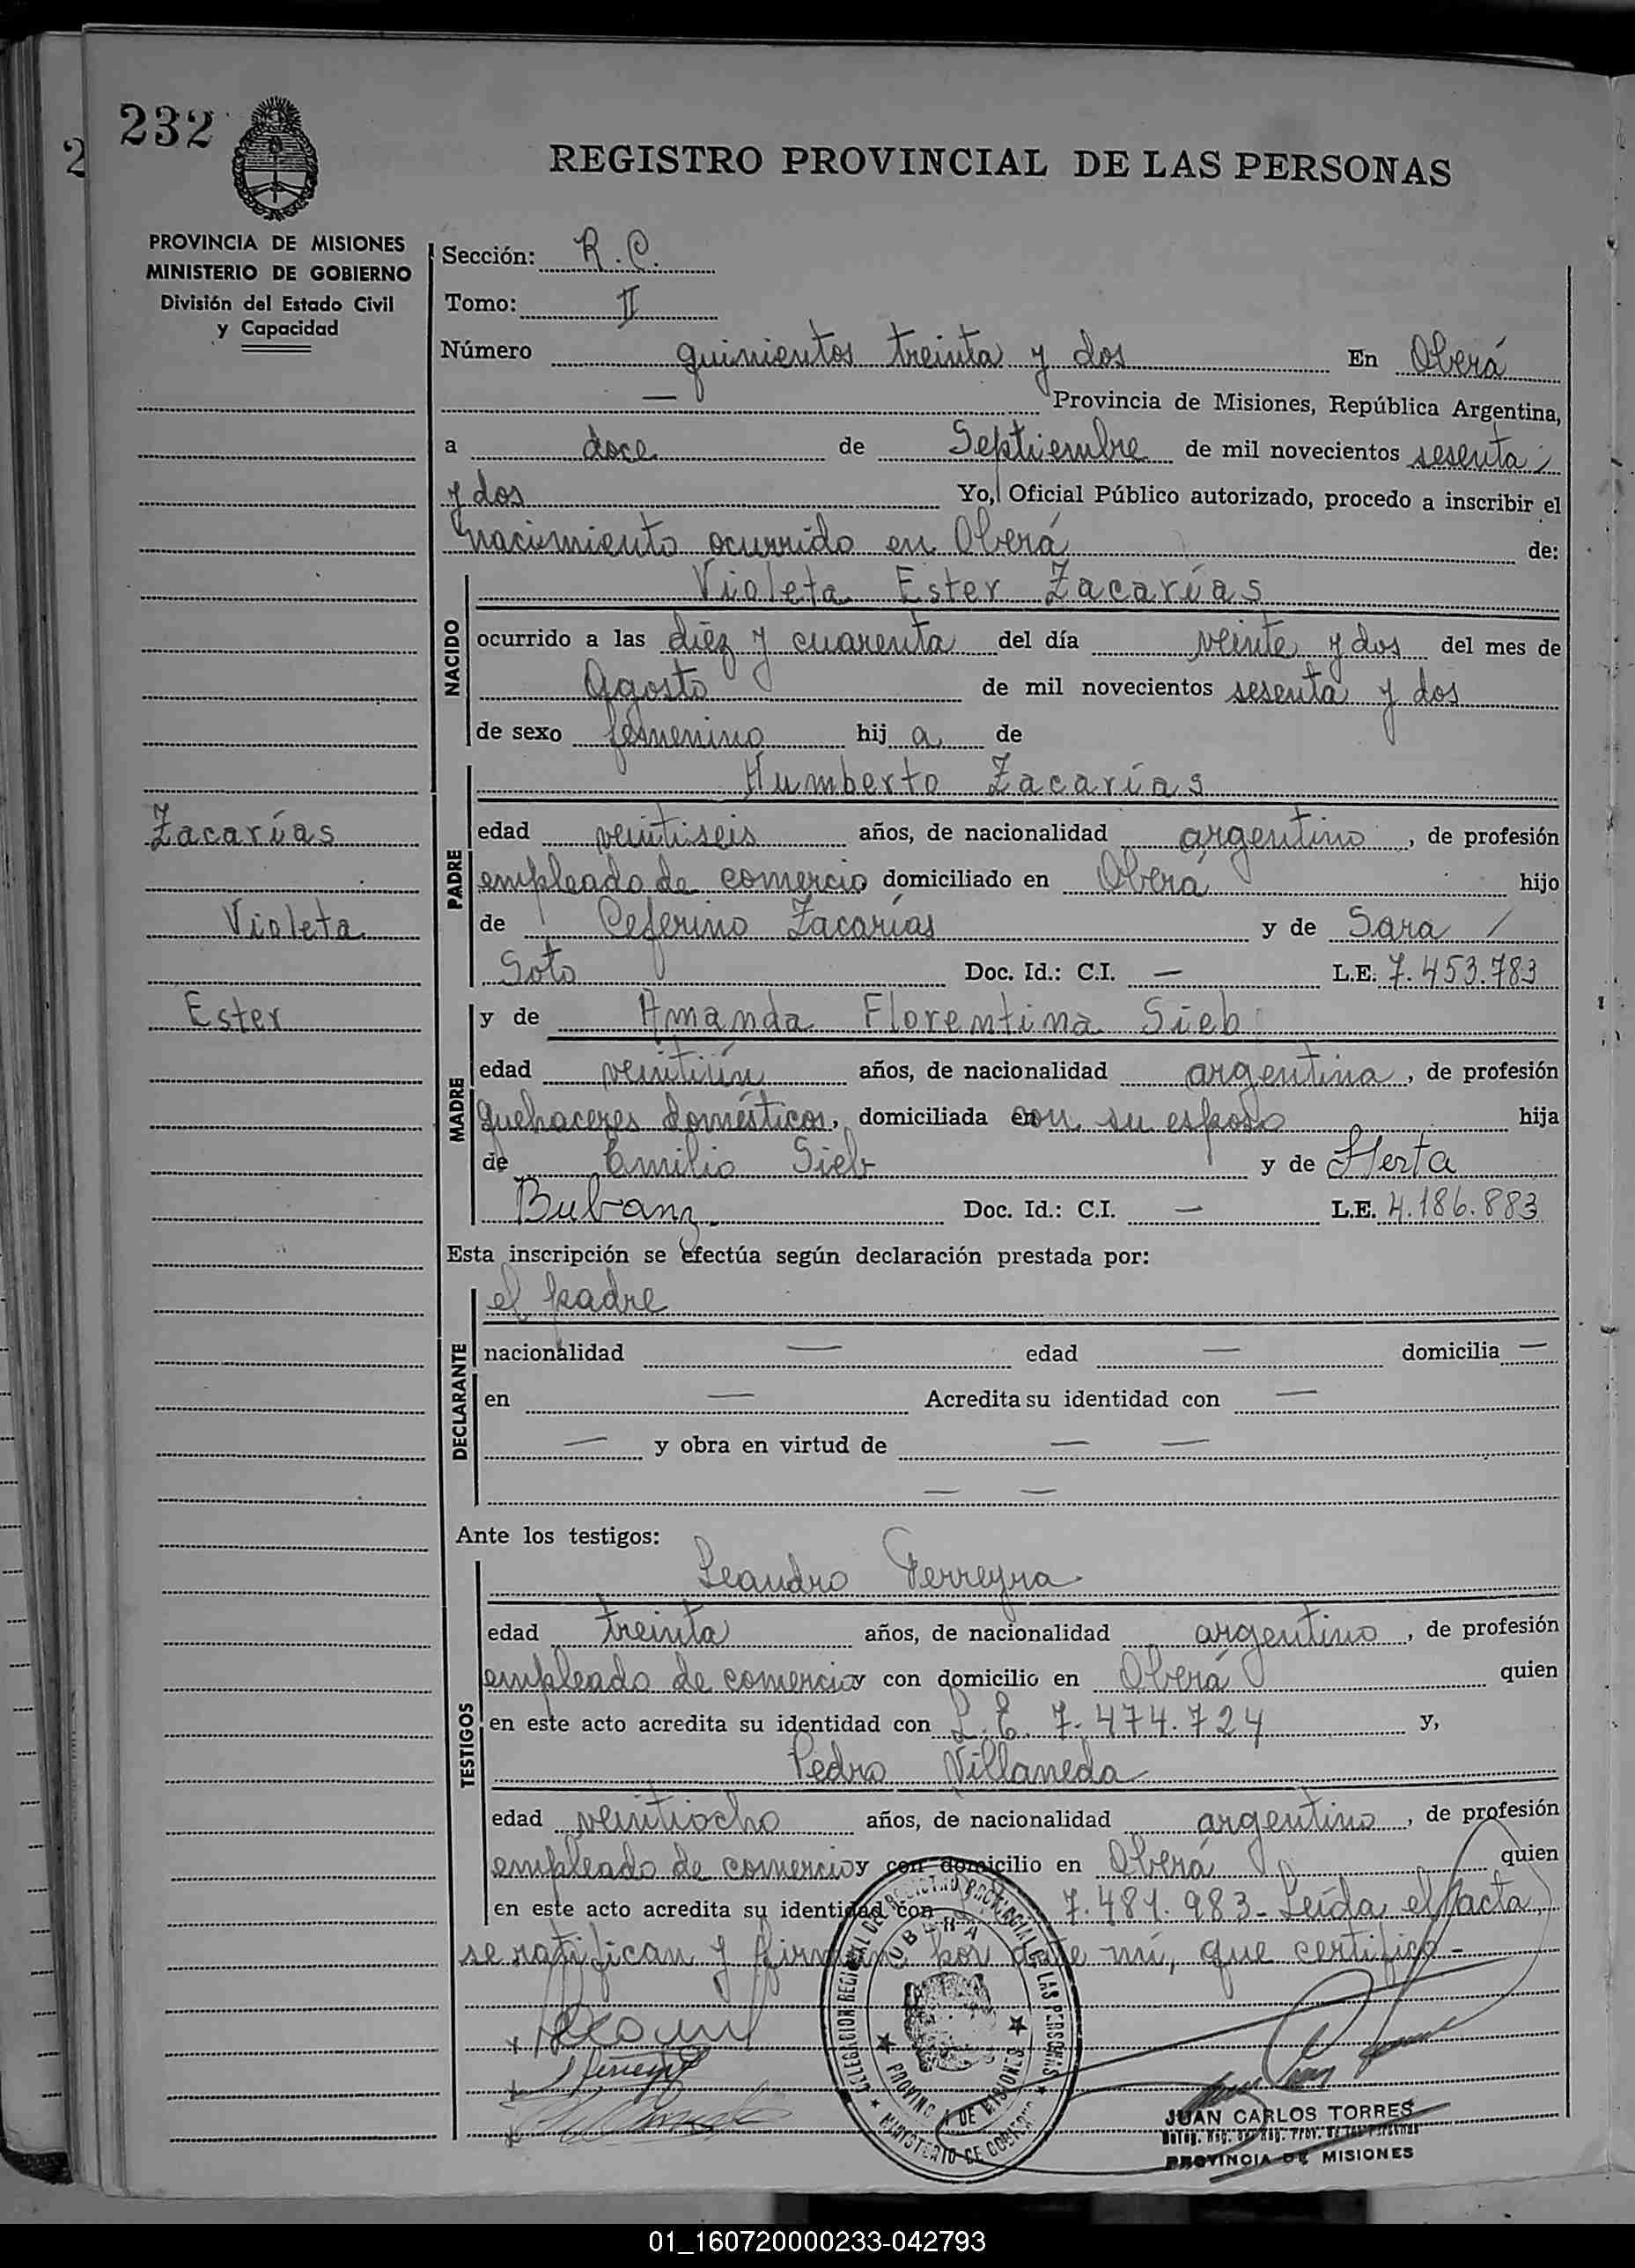 232
2
REGISTRO PROVINCIAL DE LAS PERSONAS
PROVINCIA DE MISIONES
MINISTERIO DE GOBIERNO
División del Estado Civil
y Capacidad
Sección: R. C.
Tomo: II
Número quinientos treinta y dos En Oberá
— Provincia de Misiones, República Argentina,
a doce de Septiembre de mil novecientos sesenta
y dos Yo, Oficial Público autorizado, procedo a inscribir el
nacimiento ocurrido en Oberá de:
NACIDO
Violeta Ester Zacarías
ocurrido a las diez y cuarenta del día veinte y dos del mes de
Agosto de mil novecientos sesenta y dos
de sexo femenino hij a de
PADRE
Humberto Zacarías
Zacarías
edad veintiseis años, de nacionalidad argentino, de profesión
empleado de comercio domiciliado en Oberá hijo
Violeta
de Ceferino Zacarías y de Sara /
Soto Doc. Id.: C.I. — L.E. 7.453.783
Ester
MADRE
y de Amanda Florentina Sieb
edad veintiún años, de nacionalidad argentina, de profesión
quehaceres domésticos, domiciliada con su esposo hija
de Emilio Sieb y de Herta
Bubanz Doc. Id.: C.I. — L.E. 4.186.883
Esta inscripción se efectúa según declaración prestada por:
DECLARANTE
el padre
nacionalidad — edad — domicilia —
en — Acredita su identidad con —
— y obra en virtud de — —
— —
Ante los testigos:
TESTIGOS
Leandro Ferreyra
edad treinta años, de nacionalidad argentino, de profesión
empleado de comercio y con domicilio en Oberá quien
en este acto acredita su identidad con L. E. 7.474.724 y,
Pedro Villaneda
edad veintiocho años, de nacionalidad argentino, de profesión
empleado de comercio y con domicilio en Oberá quien
en este acto acredita su identidad con 7.481.983 - Leída el acta,
se ratifican y firman por ante mí, que certifico -
DELEGACION REGIONAL DEL REGISTRO PROVINCIAL DE LAS PERSONAS
OBERA
PROVINCIA DE MISIONES
MINISTERIO DE GOBIERNO
JUAN CARLOS TORRES
PROVINCIA DE MISIONES
01_160720000233-042793